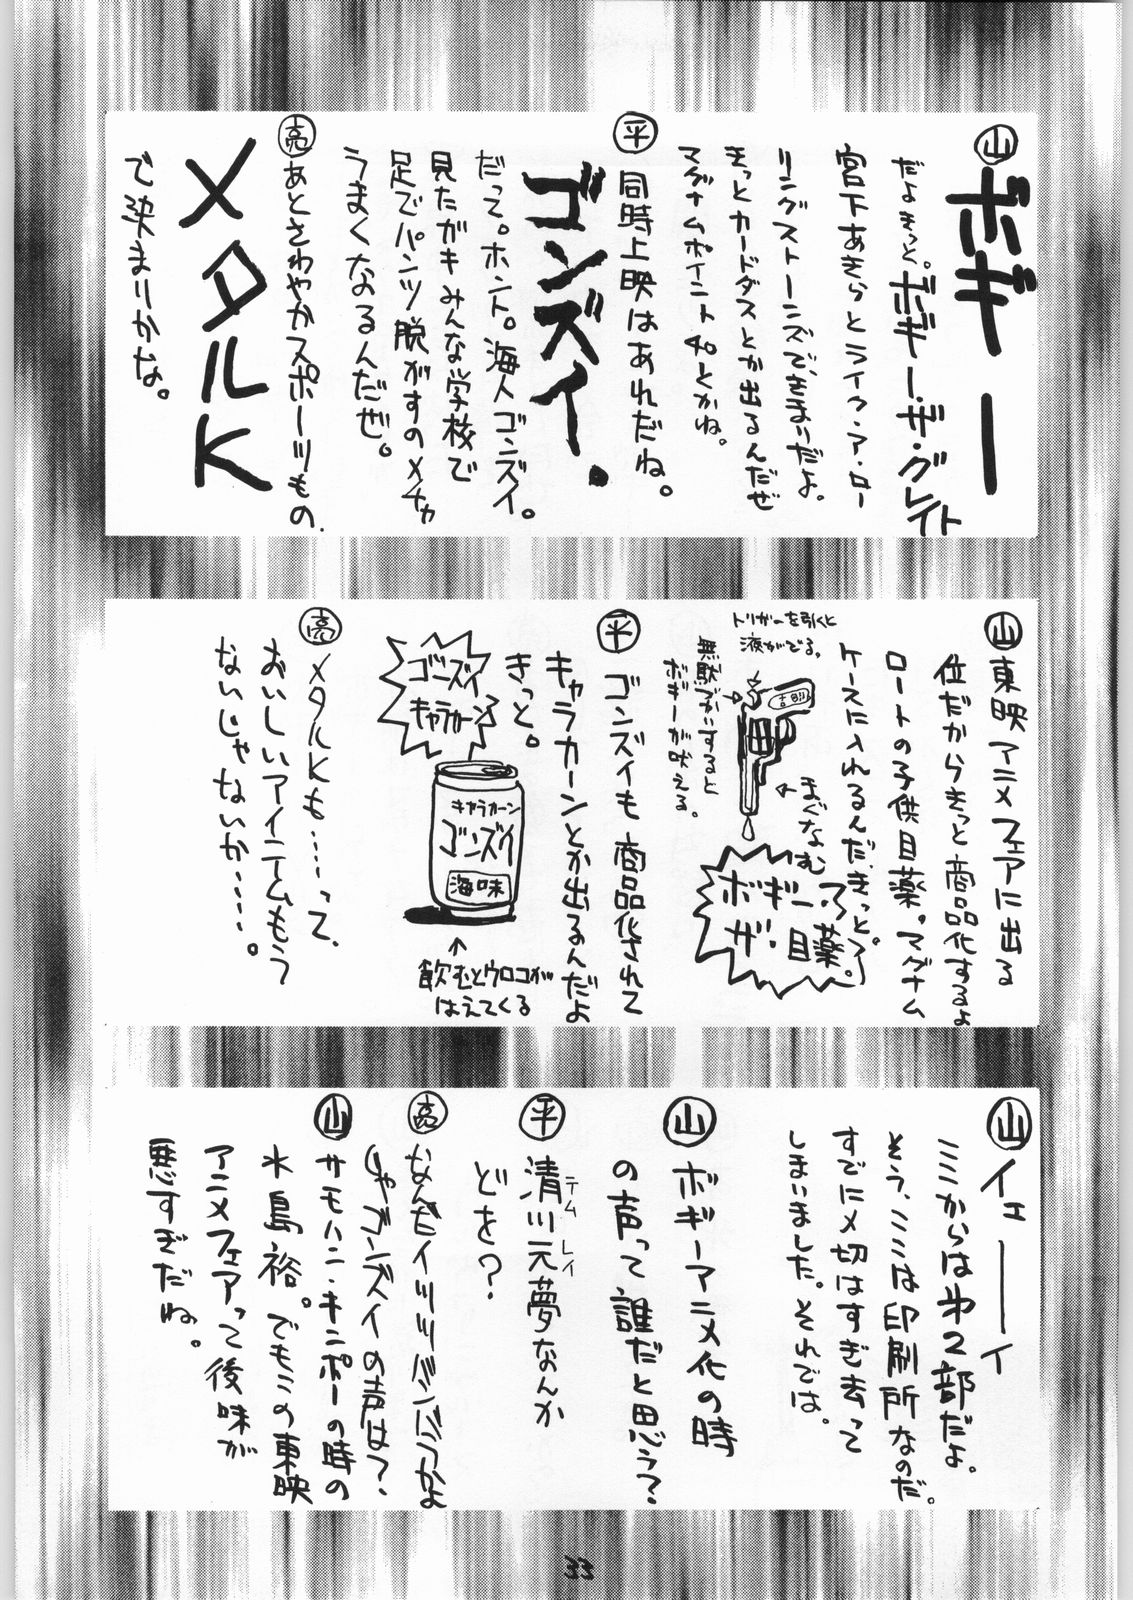 山 ボギー
だよきっと。ボギー・ザ・グレイト
宮下あきらとライク・ア・ロー
リングストーンズで、きまいだよ。
きっとカードダスとか出るんだぜ
マグナムポイント40とかね。
平 同時上映はあれだね。
ゴンズイ.
だって。ホント。海人ゴンズイ。
見たガキみんな学校で
足でパンツ脱がすのメチャ
うまくなるんだぜ。
亮 あとさわやかスポーツもの.
メタルK
で決まりかな。
山 東映アニメフェアに出る
位だからきっと商品化するよ
ロートの子供目薬。マグナム
ケースに入れるんだ、きっと。
トリガーを引くと
液がでる。
無駄づかいすると
ボギーが吠える。
まぐなむ
ボギー
ザ・目薬。
平 ゴンズイも商品化されて
キャラカーンとか出るんだよ
きっと。
ゴンズイ
キャラカーン
キャラカーン
ゴンズイ
海味
↑
飲むとウロコが
はえてくる
亮 メタルKも……って、
おいしいアイテムもう
ないじゃないか……。
山 イェーーイ
ミミからは㐧2部だよ。
そう、ミミは印刷所なのだ。
すでに〆切はすぎ去って
しまいました。それでは。
山 ボギーアニメ化の時
の声って誰だと思う?
平 清川元夢なんか
テム レイ
どを?
亮 なんでイッツバンバンかよ
じゃゴンズイの声は?
山 サモハン・キンポーの時の
水島裕。でもこの東映
アニメフェアって後味が
悪すぎだね。
33